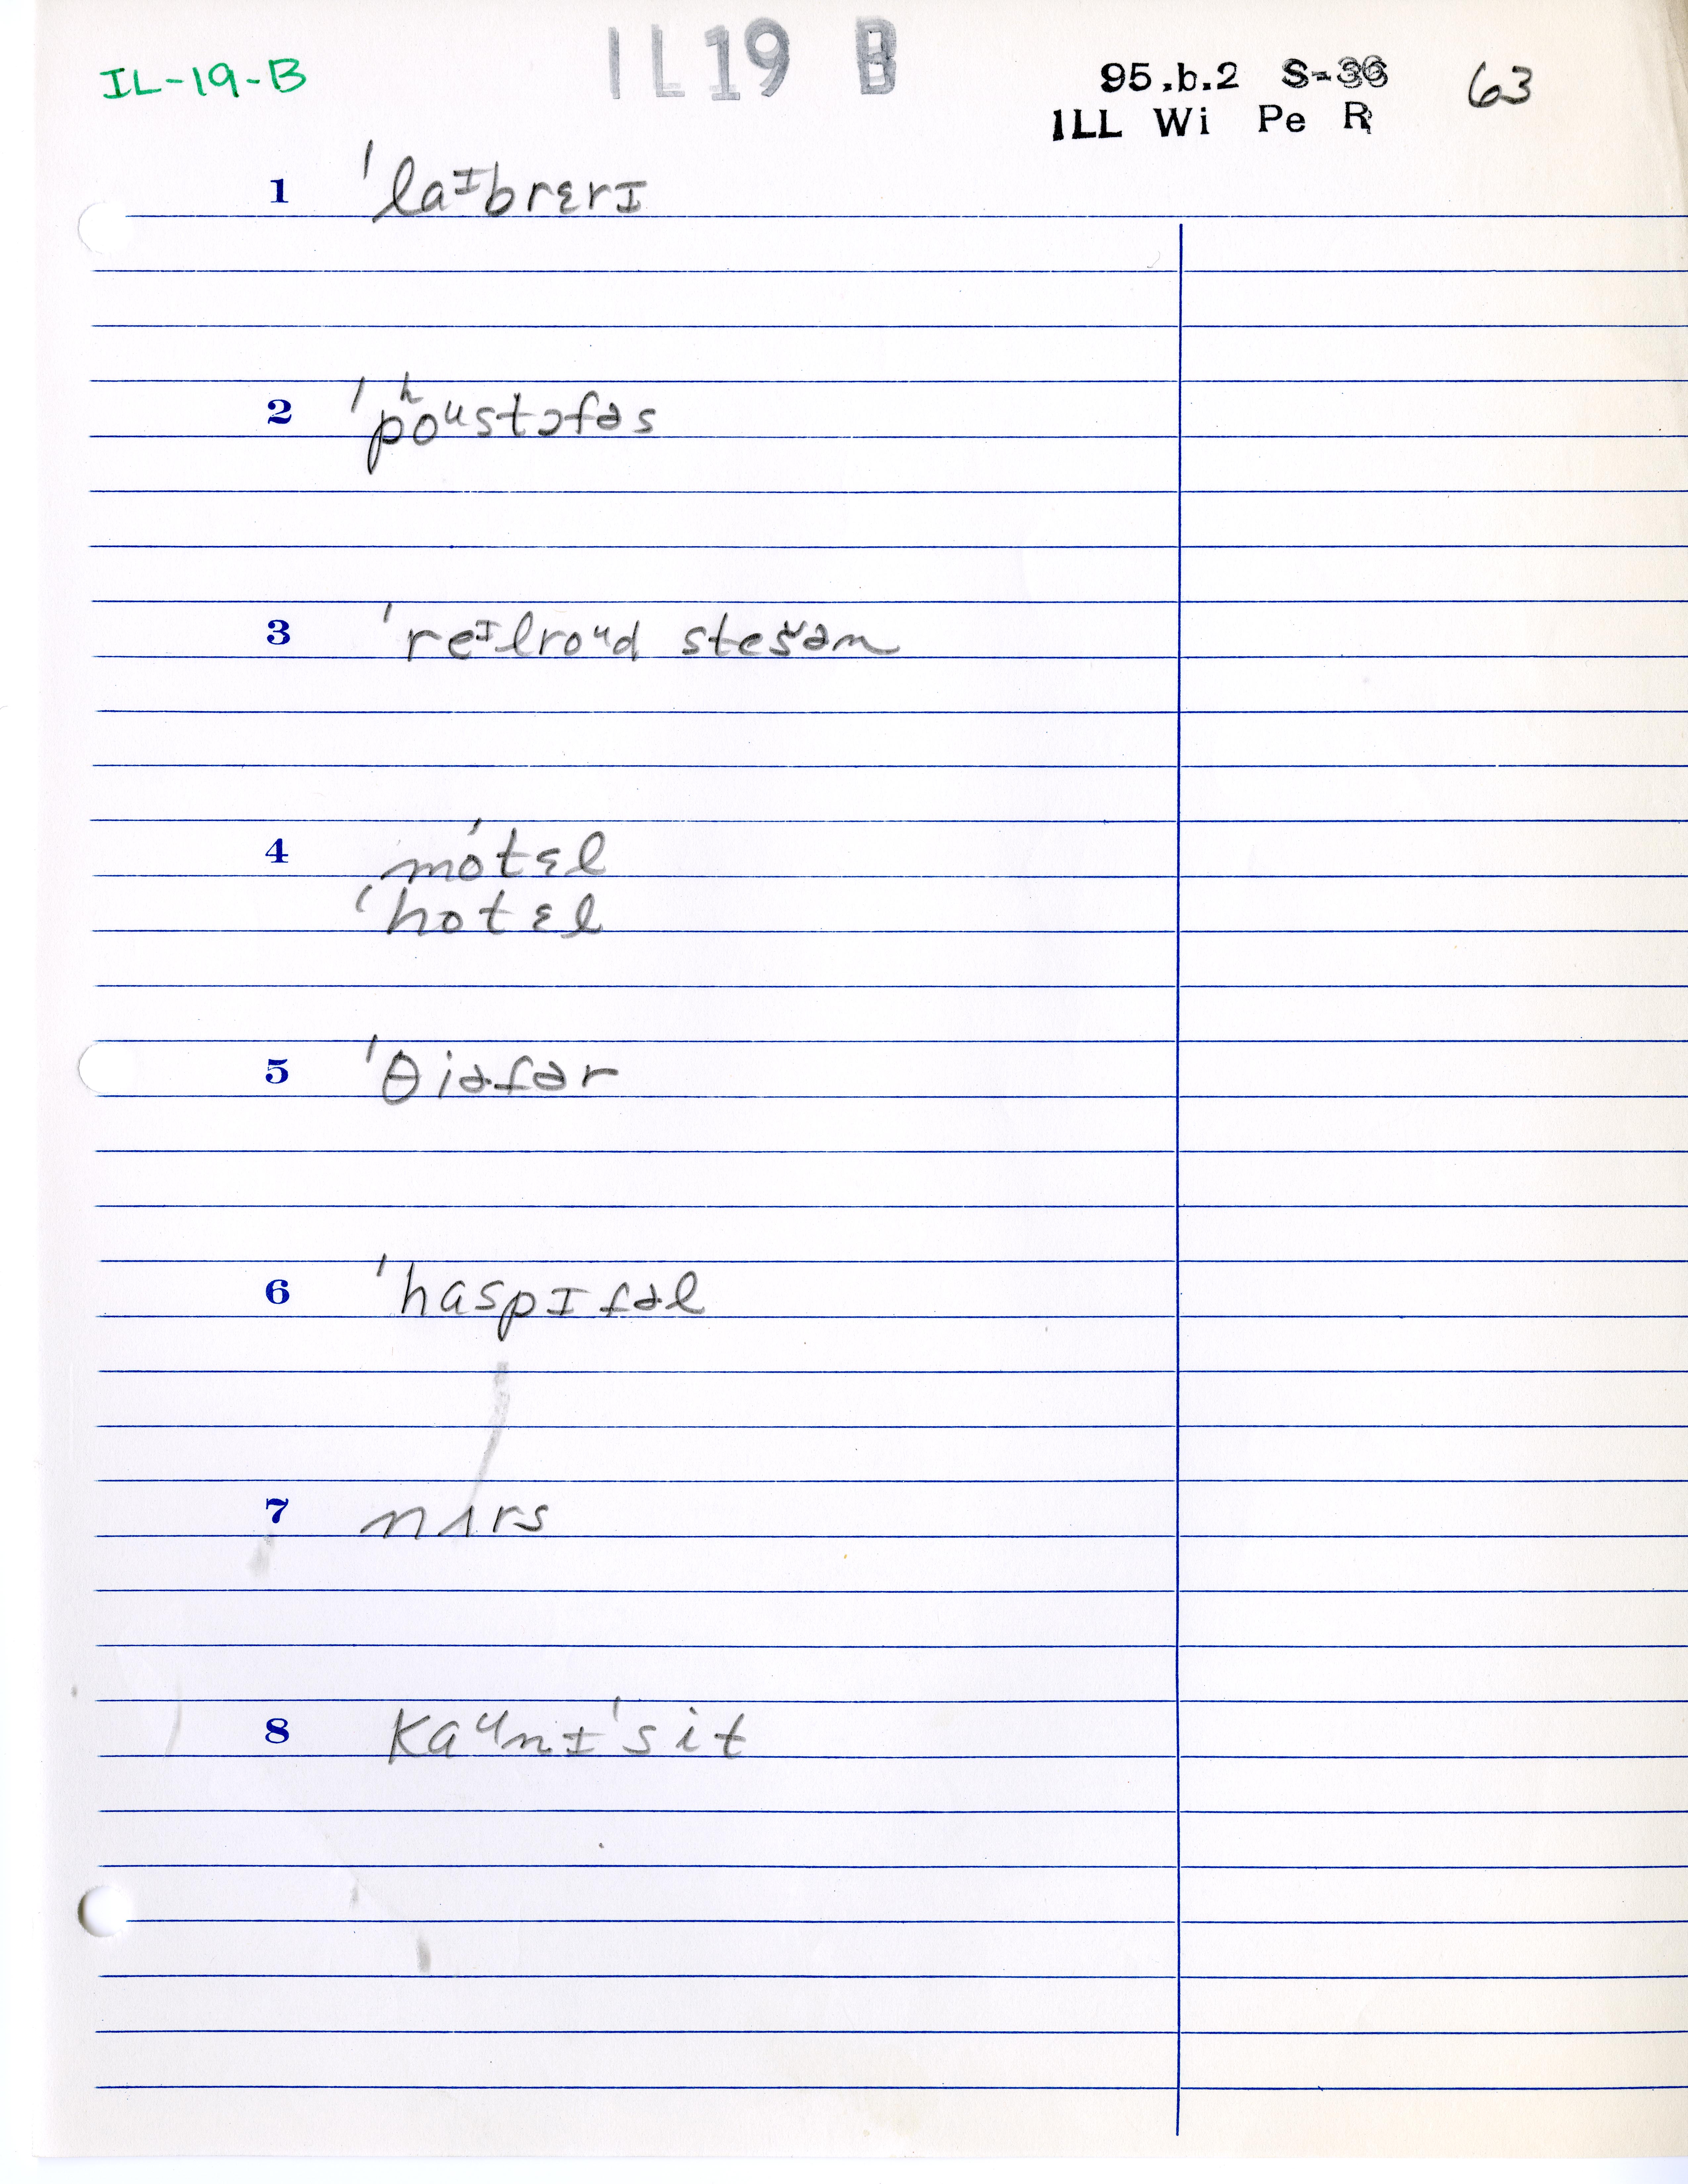 IL-19-B
IL19 B
95.b.2 S-36 63
ILL Wi Pe R
1 ˈlaᶦbrɛrɪ
2 ˈpʰoᵘstɔfəs
3 ˈreᶦlroᵘd stešən
4 móˈtɛl
ˈhotɛl
5 ˈθiəfər
6 ˈhaspɪfəl
7 nʌrs
8 kaᵘnɪˈsit